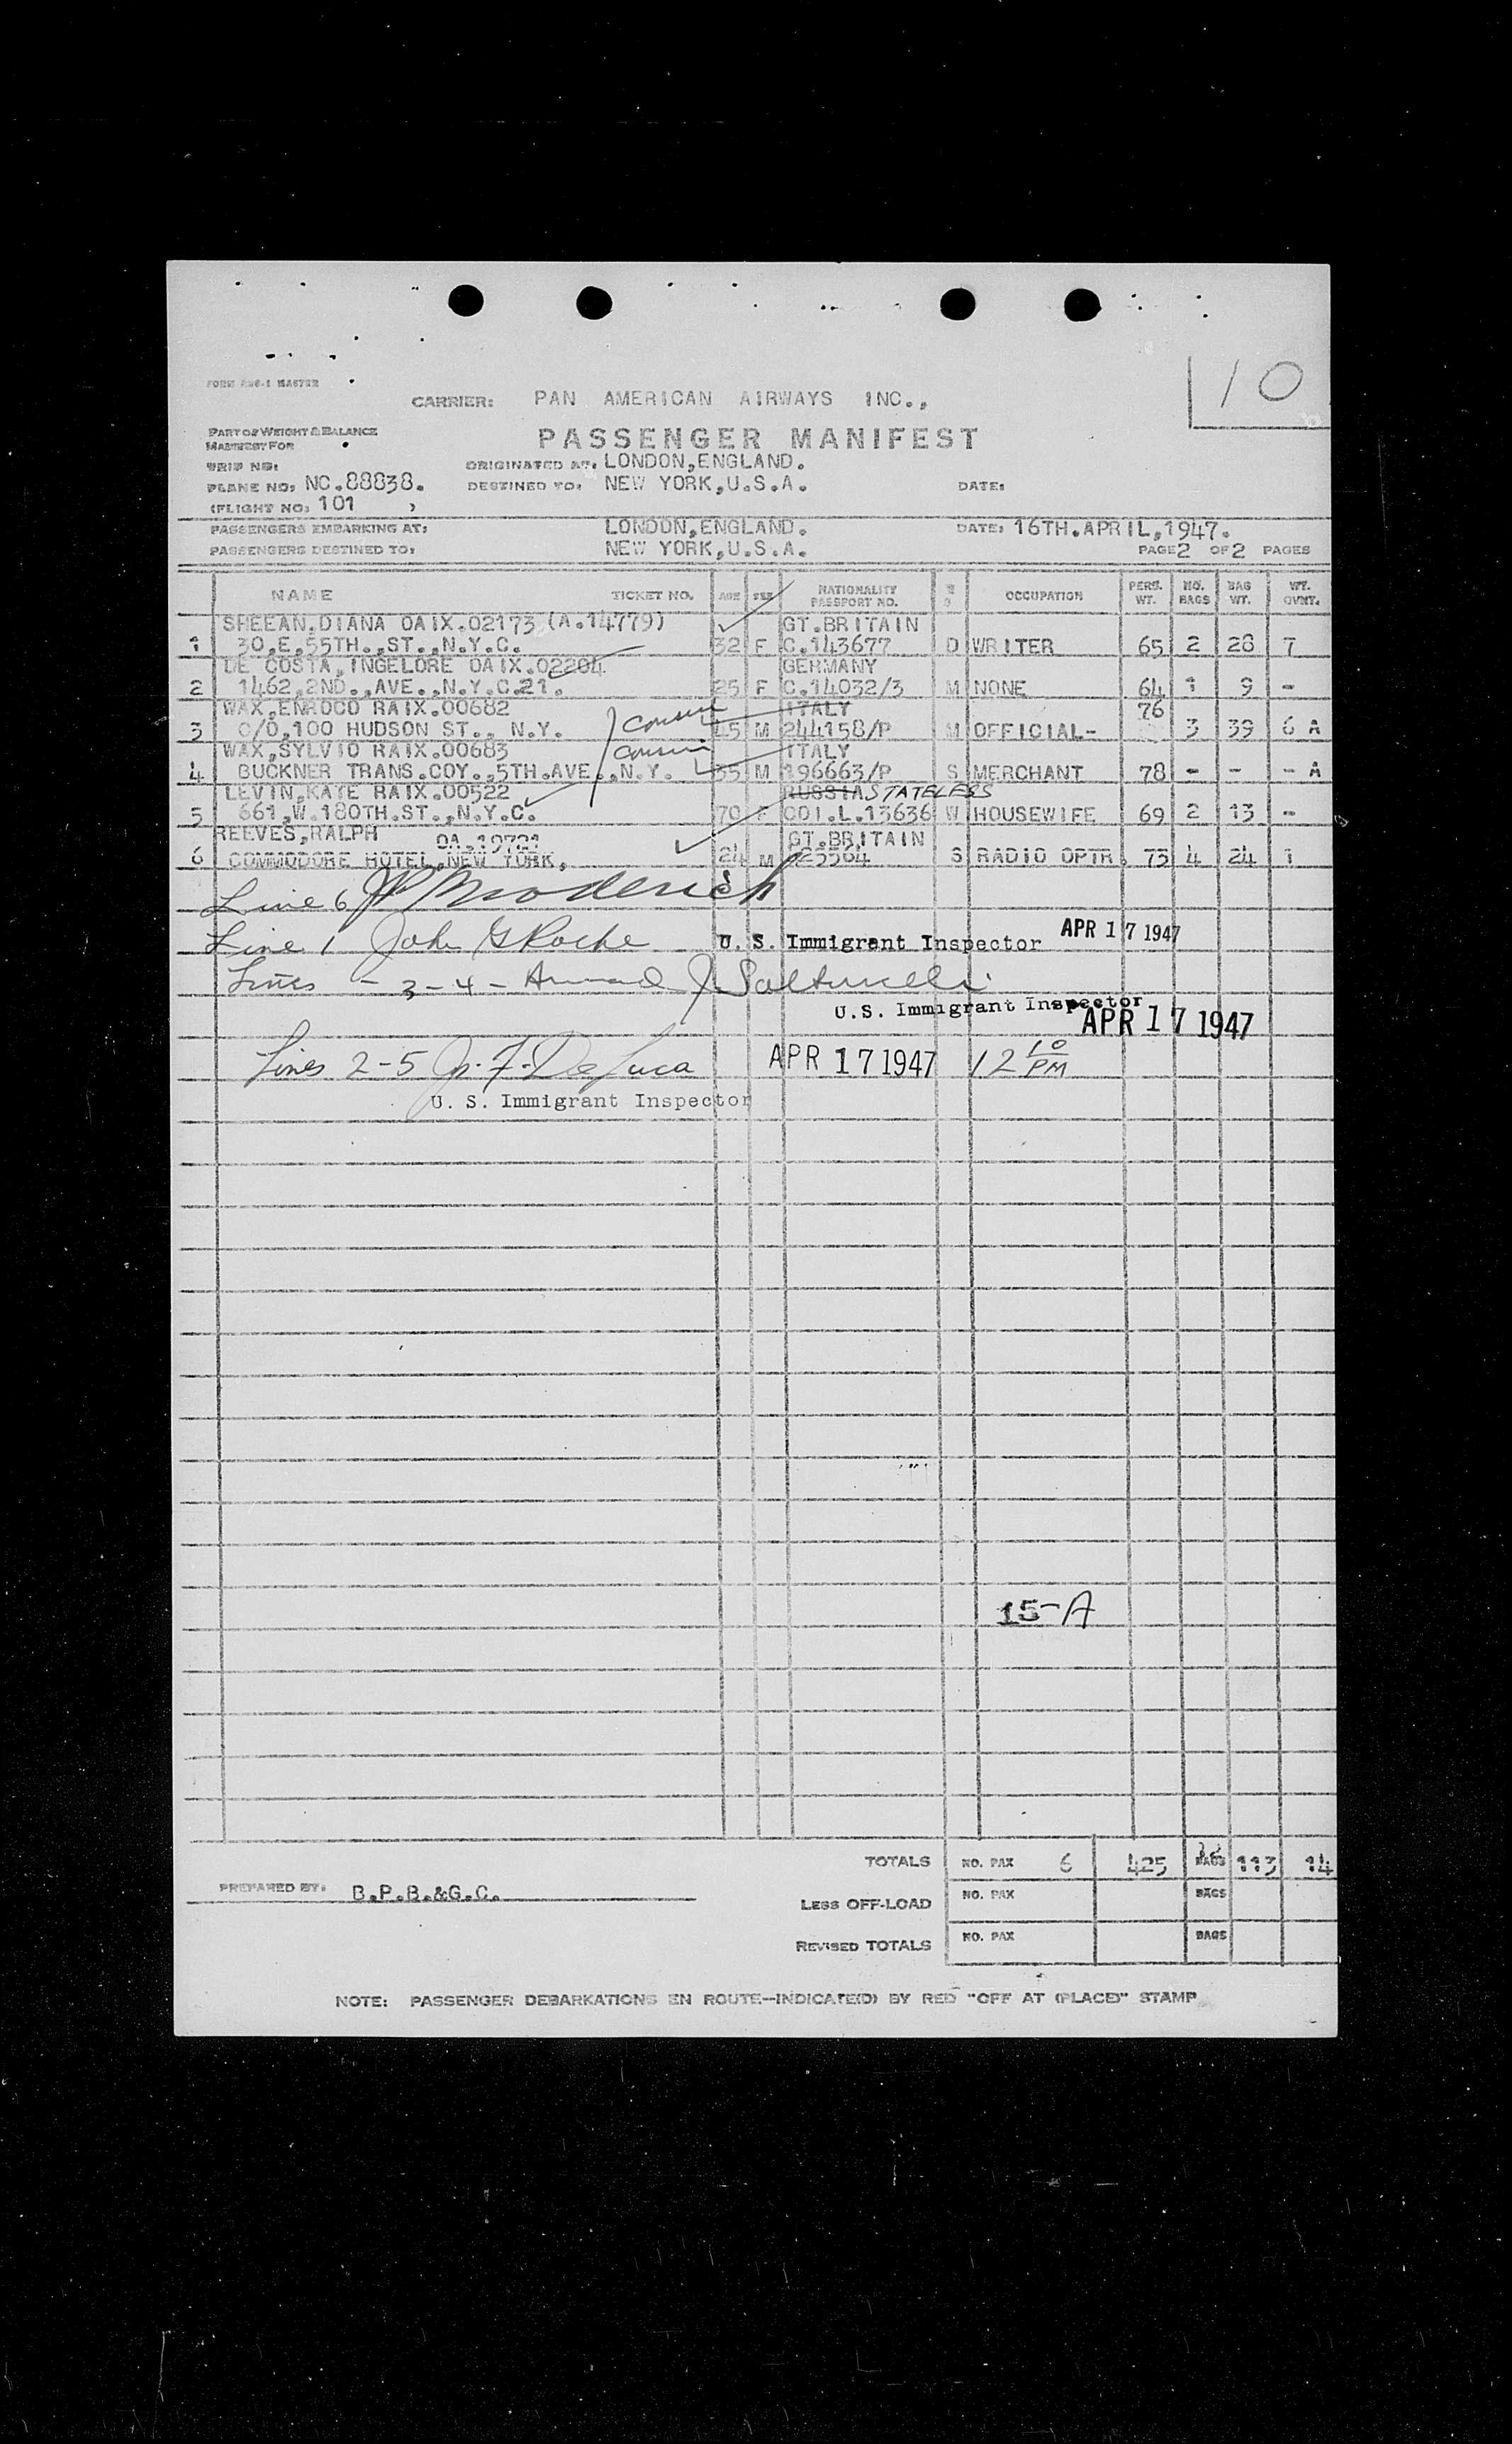 FORM AWB-1 MASTER
CARRIER: PAN AMERICAN AIRWAYS INC.,
10
PART OF WEIGHT & BALANCE
MANIFEST FOR
PASSENGER MANIFEST
TRIP NO:
ORIGINATED AT: LONDON,ENGLAND.
PLANE NO: NC.88838.
DESTINED TO: NEW YORK,U.S.A.
DATE:
(FLIGHT NO: 101 )
PASSENGERS EMBARKING AT: LONDON,ENGLAND. DATE: 16TH.APRIL,1947.
PASSENGERS DESTINED TO: NEW YORK,U.S.A. PAGE 2 OF 2 PAGES
NAME TICKET NO. AGE SEX NATIONALITY PASSPORT NO. OCCUPATION PERS. WT. NO. BAGS BAG WT. WT. OVWT.
SHEEAN,DIANA OAIX.02173 (A.14779) GT.BRITAIN
1 30,E,55TH.,ST.,N.Y.C. 32 F C.143677 D WRITER 65 2 28 7
DE COSTA,INGELORE OAIX.02204 GERMANY
2 1462,2ND.,AVE.,N.Y.C.21. 25 F C.14032/3 M NONE 64 1 9 -
WAX,ENROCO RAIX.00682 cousin ITALY 76
3 C/O,100 HUDSON ST., N.Y. 45 M 244158/P M OFFICIAL- 3 39 6 A
WAX,SYLVIO RAIX.00683 cousin ITALY
4 BUCKNER TRANS.COY.,5TH.AVE.,N.Y. 35 M 196663/P S MERCHANT 78 - - - A
LEVIN,KATE RAIX.00522 RUSSIA STATELESS
5 661,W.180TH.ST.,N.Y.C. 70 F COI.L.13636 W HOUSEWIFE 69 2 13 -
REEVES,RALPH OA.19721 GT.BRITAIN
6 COMMODORE HOTEL,NEW YORK, 24 M S RADIO OPTR. 73 4 24 1
Line 6 Broderick
Line 1 John G Roche U. S. Immigrant Inspector APR 17 1947
Lines - 3-4 - Armand J
U.S. Immigrant Inspector APR 17 1947
Lines 2-5 De Luca APR 17 1947 12 10 PM
U. S. Immigrant Inspector
15-A
TOTALS NO. PAX 6 425 BAGS 12 113 14
PREPARED BY: B.P.B.&G.C.
LESS OFF-LOAD NO. PAX BAGS
REVISED TOTALS NO. PAX BAGS
NOTE: PASSENGER DEBARKATIONS EN ROUTE—INDICATE(D) BY RED "OFF AT (PLACE)" STAMP